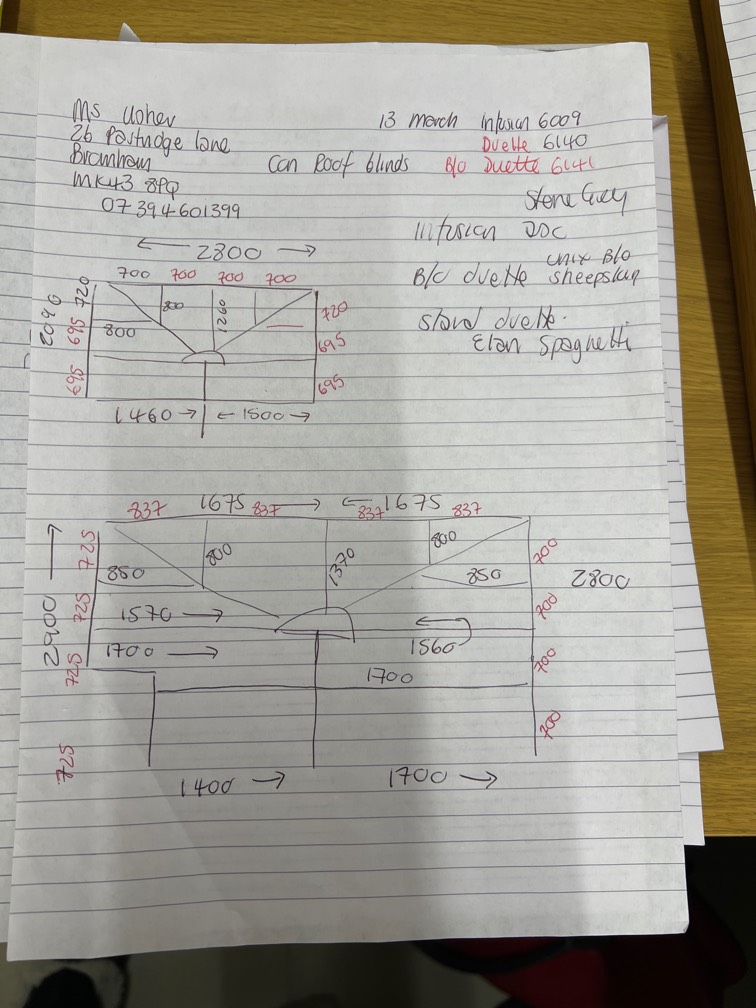 Ms Usher
26 Partridge lane
Bromham
MK43 8PQ
07394601399
13 march Infusion 6009
Duette 6140
Con Roof blinds B/o Duette 6141
Stone Grey
Infusion DDC
unix B/o
B/o duette sheepskin
stand duette.
Elan Spaghetti
← 2800 →
700 700 700 700
2090
720
695
695
800
800
1260
720
695
695
1460 → ← 1500 →
1675 → ← 1675
837 837 837 837
2900 →
725
725
725
725
850
800
1370
800
850
1570 →
1700 →
1560
1700
700
700
700
700
2800
1400 → 1700 →